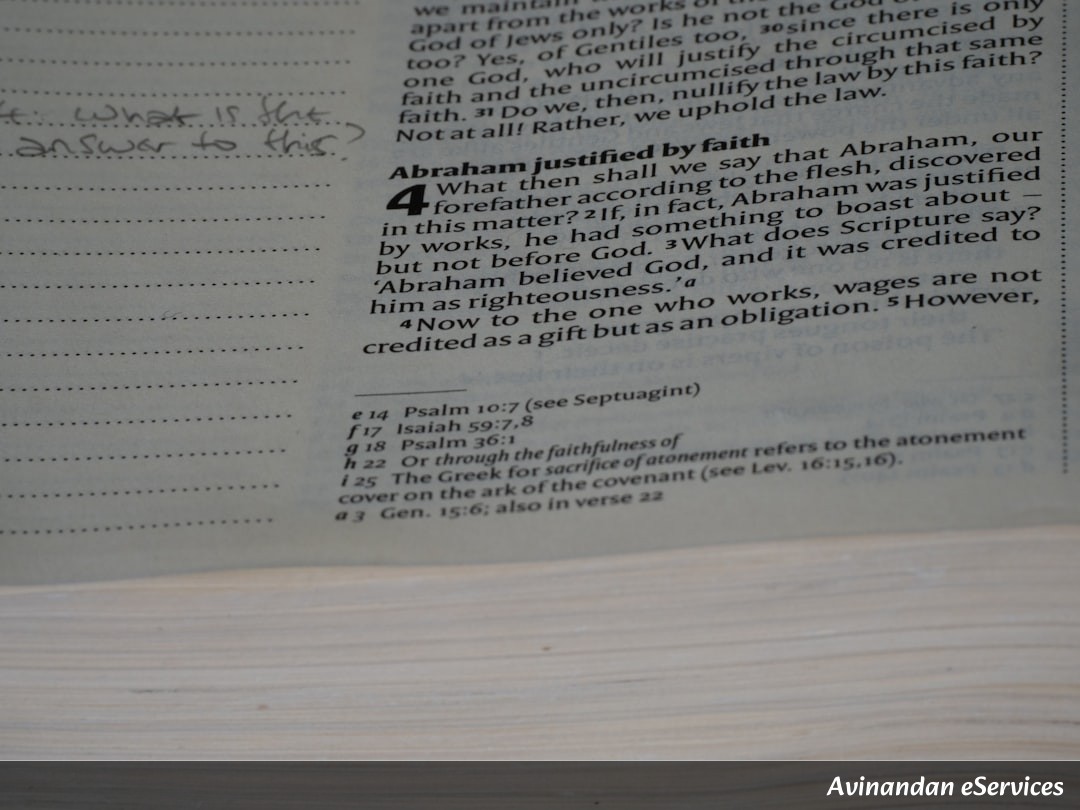 we maintain
apart from the works of
God of Jews only? Is he not the God of
too? Yes, of Gentiles too, 30 since there is only
one God, who will justify the circumcised by
faith and the uncircumcised through that same
faith. 31 Do we, then, nullify the law by this faith?
Not at all! Rather, we uphold the law.
Abraham justified by faith
4 What then shall we say that Abraham, our
forefather according to the flesh, discovered
in this matter? 2 If, in fact, Abraham was justified
by works, he had something to boast about –
but not before God. 3 What does Scripture say?
‘Abraham believed God, and it was credited to
him as righteousness.’ a
4 Now to the one who works, wages are not
credited as a gift but as an obligation. 5 However,
e 14 Psalm 10:7 (see Septuagint)
f 17 Isaiah 59:7,8
g 18 Psalm 36:1
h 22 Or through the faithfulness of
i 25 The Greek for sacrifice of atonement refers to the atonement
cover on the ark of the covenant (see Lev. 16:15,16).
a 3 Gen. 15:6; also in verse 22
what is the
answer to this?
Avinandan eServices